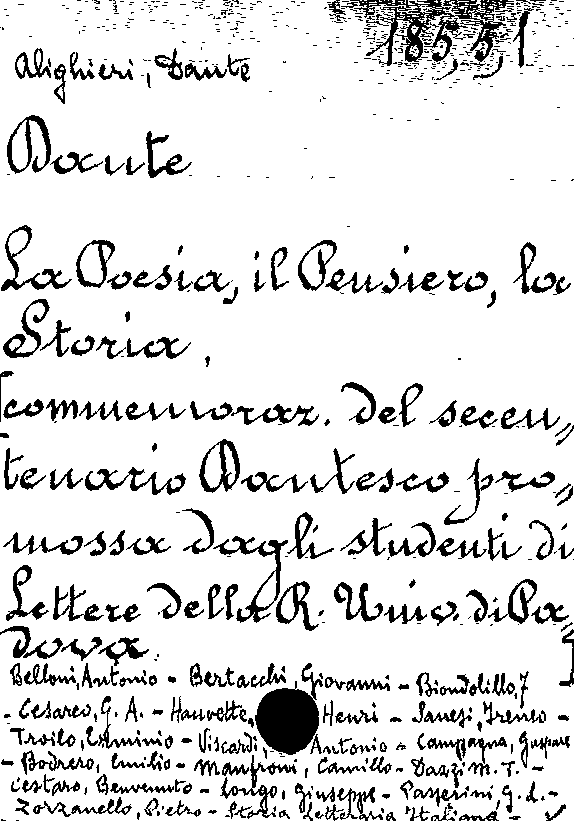 185,5,1
Alighieri, Dante
Dante
La Poesia, il Pensiero, la
Storia,
[commemoraz. del secen-
tenario Dantesco pro-
mossa dagli studenti di
Lettere della R. Univ. di Pa-
dova.]
Belloni, Antonio - Bertacchi, Giovanni - Biondolillo, F
- Cesareo, G. A. - Hauvette, Henri - Sanesi, Ireneo -
Troilo, Erminio - Viscardi, Antonio - Campagna, Gaspare
- Bodrero, Emilio - Manfroni, Camillo - Dazzi M. T. -
Cestaro, Benvenuto - Longo, Giuseppe - Passerini, G. L. -
Zorzanello, Pietro - Storia Letteraria Italiana -